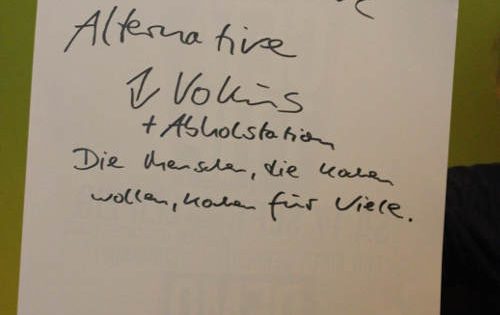 Alternative
Vokūs
+ Abholstation
Die Menschen, die kochen
wollen, kochen für Viele.